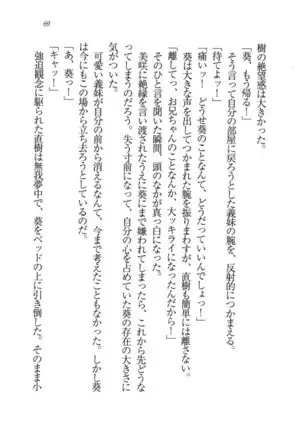 69
樹の絶望感は大きかった。
「葵、もう帰る！」
そう言って自分の部屋に戻ろうとした義妹の腕を、反射的につかまえる。
「待てよッ！」
「痛いッ！　どうせ葵のことなんて、どうだっていいんでしょっ！」
葵は大きな声を出してつかまった腕を振りまわすが、直樹も簡単には離さない。
「離してッ、お兄ちゃんのことなんか、大ッキライになっちゃうからぁ！」
そのひと言を聞いた瞬間、頭のなかが真っ白になった。
美咲に絶縁を言い渡されたうえに葵にまで嫌われてしまったら、これから先どうな
ってしまうのだろう。失う寸前になって、自分の心を占めていた葵の存在の大きさに
気がついた。
可愛い義妹が自分の前から消えるなんて、今まで考えたこともなかった。しかし葵
は今にもこの場から立ち去ろうとしているのだ。
「あ、葵っ！」
「キャッ！」
強迫観念に駆られた直樹は無我夢中で、葵をベッドの上に引き倒した。そのまま小